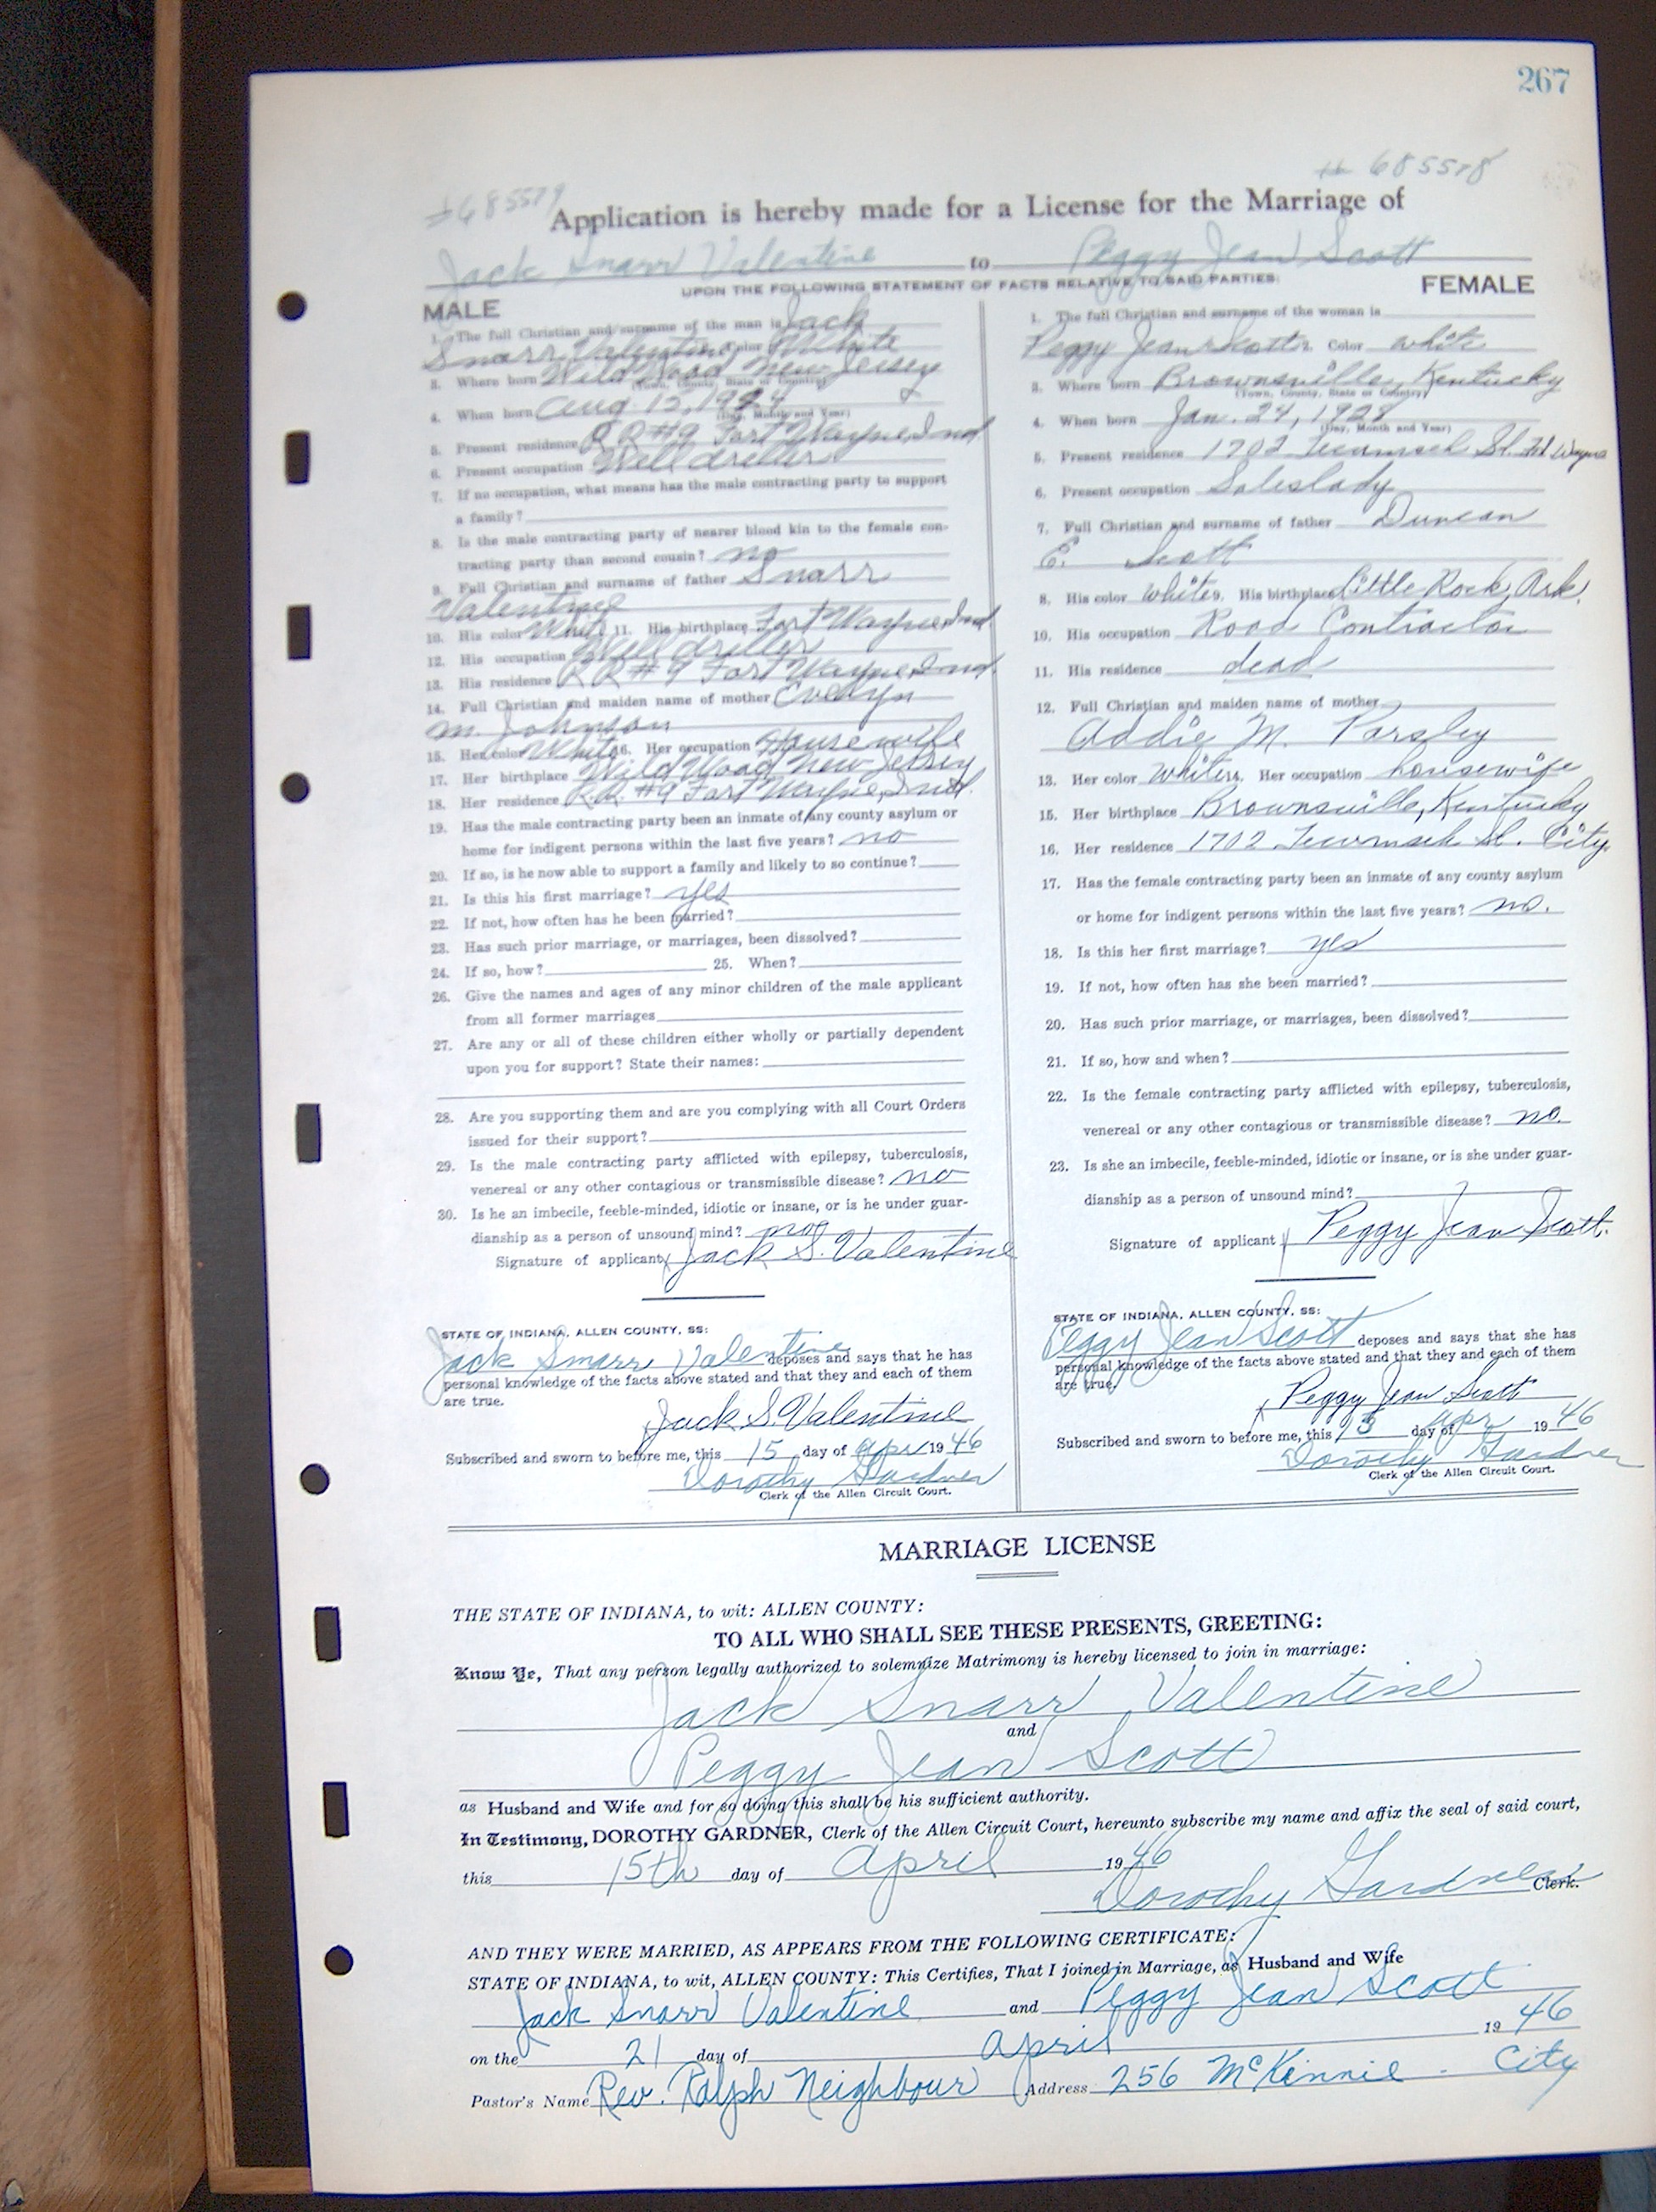 267
# 685579
# 685578
Application is hereby made for a License for the Marriage of
Jack Snarr Valentine to Peggy Jean Scott
UPON THE FOLLOWING STATEMENT OF FACTS RELATIVE TO SAID PARTIES:
MALE
1. The full Christian and surname of the man is Jack
Snarr Valentine Color White
3. Where born Wild Wood New Jersey
(Town, County, State or Country)
4. When born Aug. 15, 1924
(Day, Month and Year)
5. Present residence R R #9 Fort Wayne, Ind
6. Present occupation Well driller
7. If no occupation, what means has the male contracting party to support
a family?
8. Is the male contracting party of nearer blood kin to the female con-
tracting party than second cousin? no
9. Full Christian and surname of father Snarr
Valentine
10. His color White 11. His birthplace Fort Wayne, Ind.
12. His occupation Well driller
13. His residence R R #9 Fort Wayne, Ind.
14. Full Christian and maiden name of mother Evelyn
M. Johnson
15. Her color White 16. Her occupation Housewife
17. Her birthplace Wild Wood New Jersey
18. Her residence R.R. #9 Fort Wayne, Ind.
19. Has the male contracting party been an inmate of any county asylum or
home for indigent persons within the last five years? no
20. If so, is he now able to support a family and likely to so continue?
21. Is this his first marriage? yes
22. If not, how often has he been married?
23. Has such prior marriage, or marriages, been dissolved?
24. If so, how? 25. When?
26. Give the names and ages of any minor children of the male applicant
from all former marriages
27. Are any or all of these children either wholly or partially dependent
upon you for support? State their names:
28. Are you supporting them and are you complying with all Court Orders
issued for their support?
29. Is the male contracting party afflicted with epilepsy, tuberculosis,
venereal or any other contagious or transmissible disease? no
30. Is he an imbecile, feeble-minded, idiotic or insane, or is he under guar-
dianship as a person of unsound mind?
Signature of applicant x Jack S. Valentine
STATE OF INDIANA, ALLEN COUNTY, SS:
Jack Snarr Valentine deposes and says that he has
personal knowledge of the facts above stated and that they and each of them
are true.
Jack S. Valentine
Subscribed and sworn to before me, this 15 day of Apr 1946
Dorothy Gardner
Clerk of the Allen Circuit Court.
FEMALE
1. The full Christian and surname of the woman is
Peggy Jean Scott 2. Color white
3. Where born Brownsville, Kentucky
(Town, County, State or Country)
4. When born Jan. 24, 1928
(Day, Month and Year)
5. Present residence 1702 Tecumseh St. Ft Wayne
6. Present occupation Saleslady
7. Full Christian and surname of father Duncan
E. Scott
8. His color white 9. His birthplace Little Rock, Ark.
10. His occupation Road Contractor
11. His residence dead
12. Full Christian and maiden name of mother
Addie M. Parsley
13. Her color white 14. Her occupation housewife
15. Her birthplace Brownsville, Kentucky
16. Her residence 1702 Tecumseh St. City
17. Has the female contracting party been an inmate of any county asylum
or home for indigent persons within the last five years? no.
18. Is this her first marriage? yes
19. If not, how often has she been married?
20. Has such prior marriage, or marriages, been dissolved?
21. If so, how and when?
22. Is the female contracting party afflicted with epilepsy, tuberculosis,
venereal or any other contagious or transmissible disease? no.
23. Is she an imbecile, feeble-minded, idiotic or insane, or is she under guar-
dianship as a person of unsound mind?
Signature of applicant x Peggy Jean Scott.
STATE OF INDIANA, ALLEN COUNTY, SS:
Peggy Jean Scott deposes and says that she has
personal knowledge of the facts above stated and that they and each of them
are true.
x Peggy Jean Scott
Subscribed and sworn to before me, this 15 day of Apr 1946
Dorothy Gardner
Clerk of the Allen Circuit Court.
MARRIAGE LICENSE
THE STATE OF INDIANA, to wit: ALLEN COUNTY:
TO ALL WHO SHALL SEE THESE PRESENTS, GREETING:
Know Ye, That any person legally authorized to solemnize Matrimony is hereby licensed to join in marriage:
Jack Snarr Valentine
and
Peggy Jean Scott
as Husband and Wife and for so doing this shall be his sufficient authority.
In Testimony, DOROTHY GARDNER, Clerk of the Allen Circuit Court, hereunto subscribe my name and affix the seal of said court,
this 15th day of April 1946
Dorothy Gardner Clerk.
AND THEY WERE MARRIED, AS APPEARS FROM THE FOLLOWING CERTIFICATE:
STATE OF INDIANA, to wit, ALLEN COUNTY: This Certifies, That I joined in Marriage, as Husband and Wife
Jack Snarr Valentine and Peggy Jean Scott
on the 21 day of April 1946
Pastor's Name Rev. Ralph Neighbour Address 256 McKinnie - City